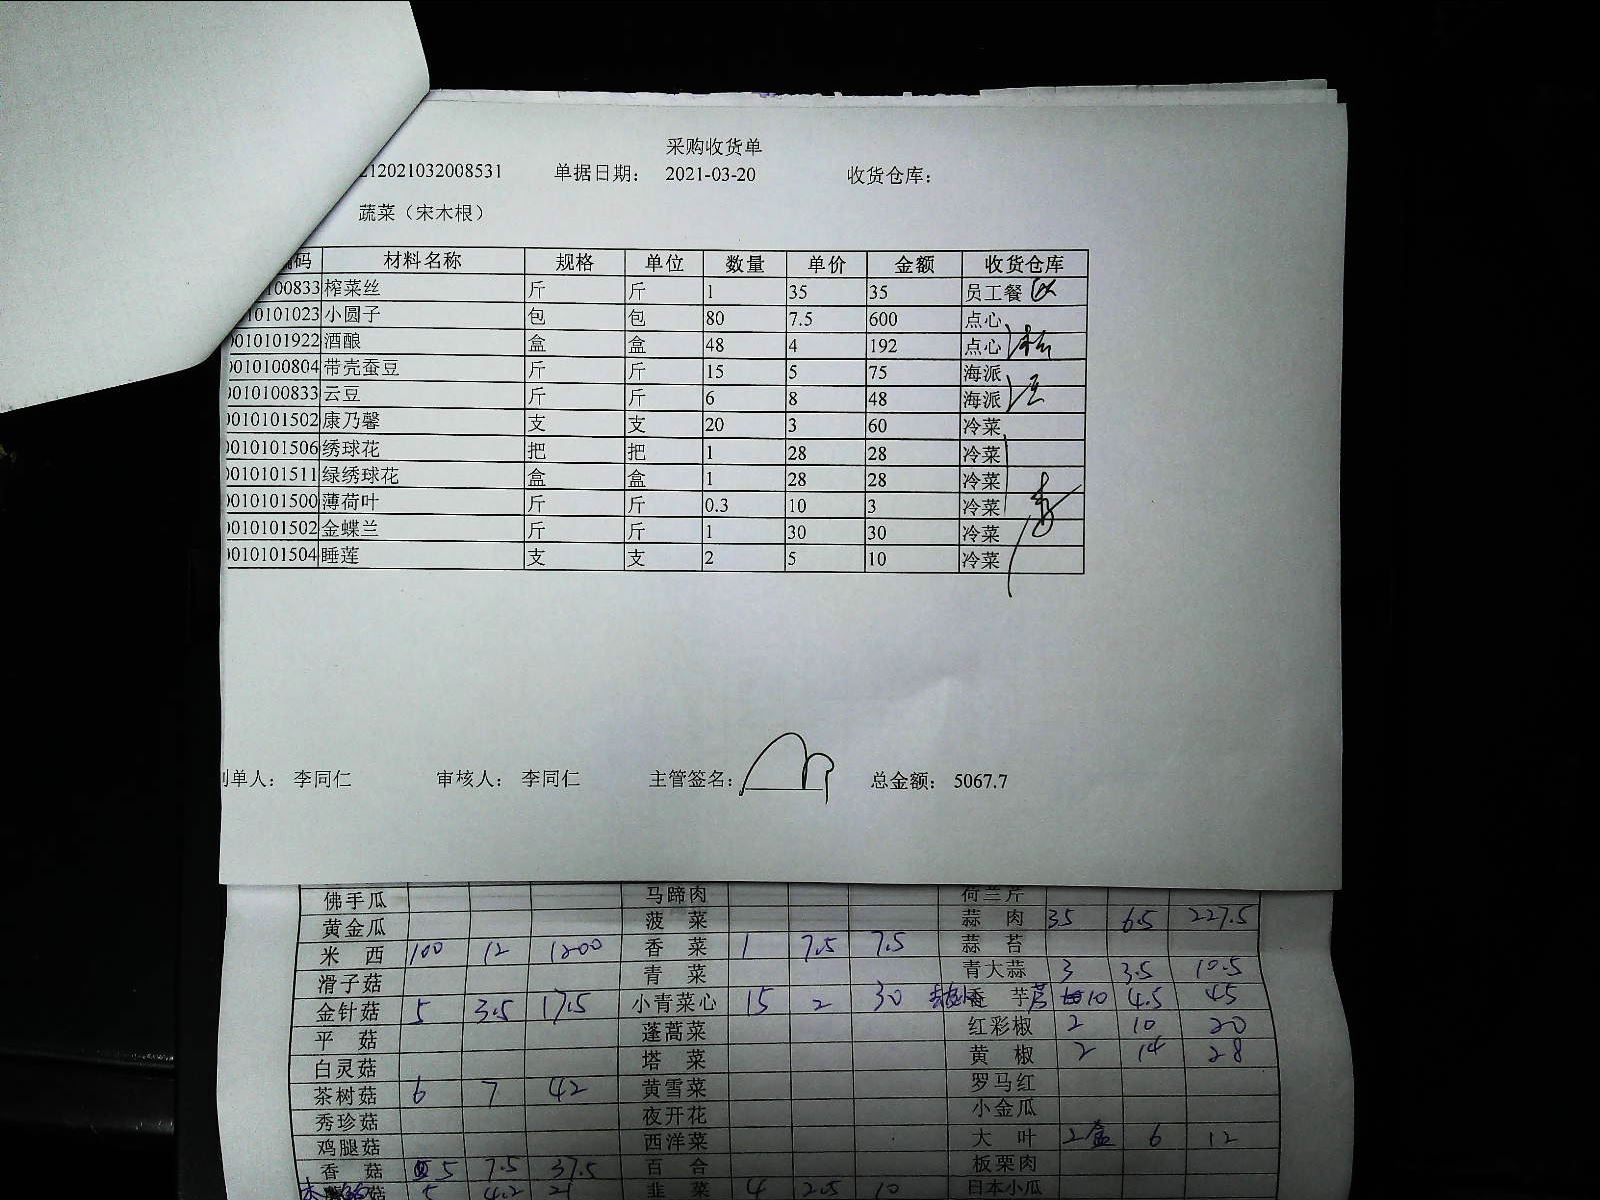 采购收货单
212021032008531 单据日期： 2021-03-20 收货仓库：
蔬菜（宋木根）
编码 材料名称 规格 单位 数量 单价 金额 收货仓库
100833 榨菜丝 斤 斤 1 35 35 员工餐
10101023 小圆子 包 包 80 7.5 600 点心
0010101922 酒酿 盒 盒 48 4 192 点心
0010100804 带壳蚕豆 斤 斤 15 5 75 海派
0010100833 云豆 斤 斤 6 8 48 海派
0010101502 康乃馨 支 支 20 3 60 冷菜
0010101506 绣球花 把 把 1 28 28 冷菜
0010101511 绿绣球花 盒 盒 1 28 28 冷菜
0010101500 薄荷叶 斤 斤 0.3 10 3 冷菜
0010101502 金蝶兰 斤 斤 1 30 30 冷菜
0010101504 睡莲 支 支 2 5 10 冷菜
制单人： 李同仁 审核人： 李同仁 主管签名： 总金额： 5067.7
佛手瓜 马蹄肉 荷兰芹
黄金瓜 菠菜 蒜肉 35 6.5 227.5
米西 100 12 1200 香菜 1 7.5 7.5 蒜苔
滑子菇 青菜 青大蒜 3 3.5 10.5
金针菇 5 3.5 17.5 小青菜心 15 2 30 香芋 10 4.5 45
平菇 蓬蒿菜 红彩椒 2 10 20
白灵菇 塔菜 黄椒 2 14 28
茶树菇 6 7 42 黄雪菜 罗马红
秀珍菇 夜开花 小金瓜
鸡腿菇 西洋菜 大叶 2盒 6 12
香菇 5 7.5 37.5 百合 板栗肉
菇 5 4.2 21 韭菜 4 2.5 10 日本小瓜